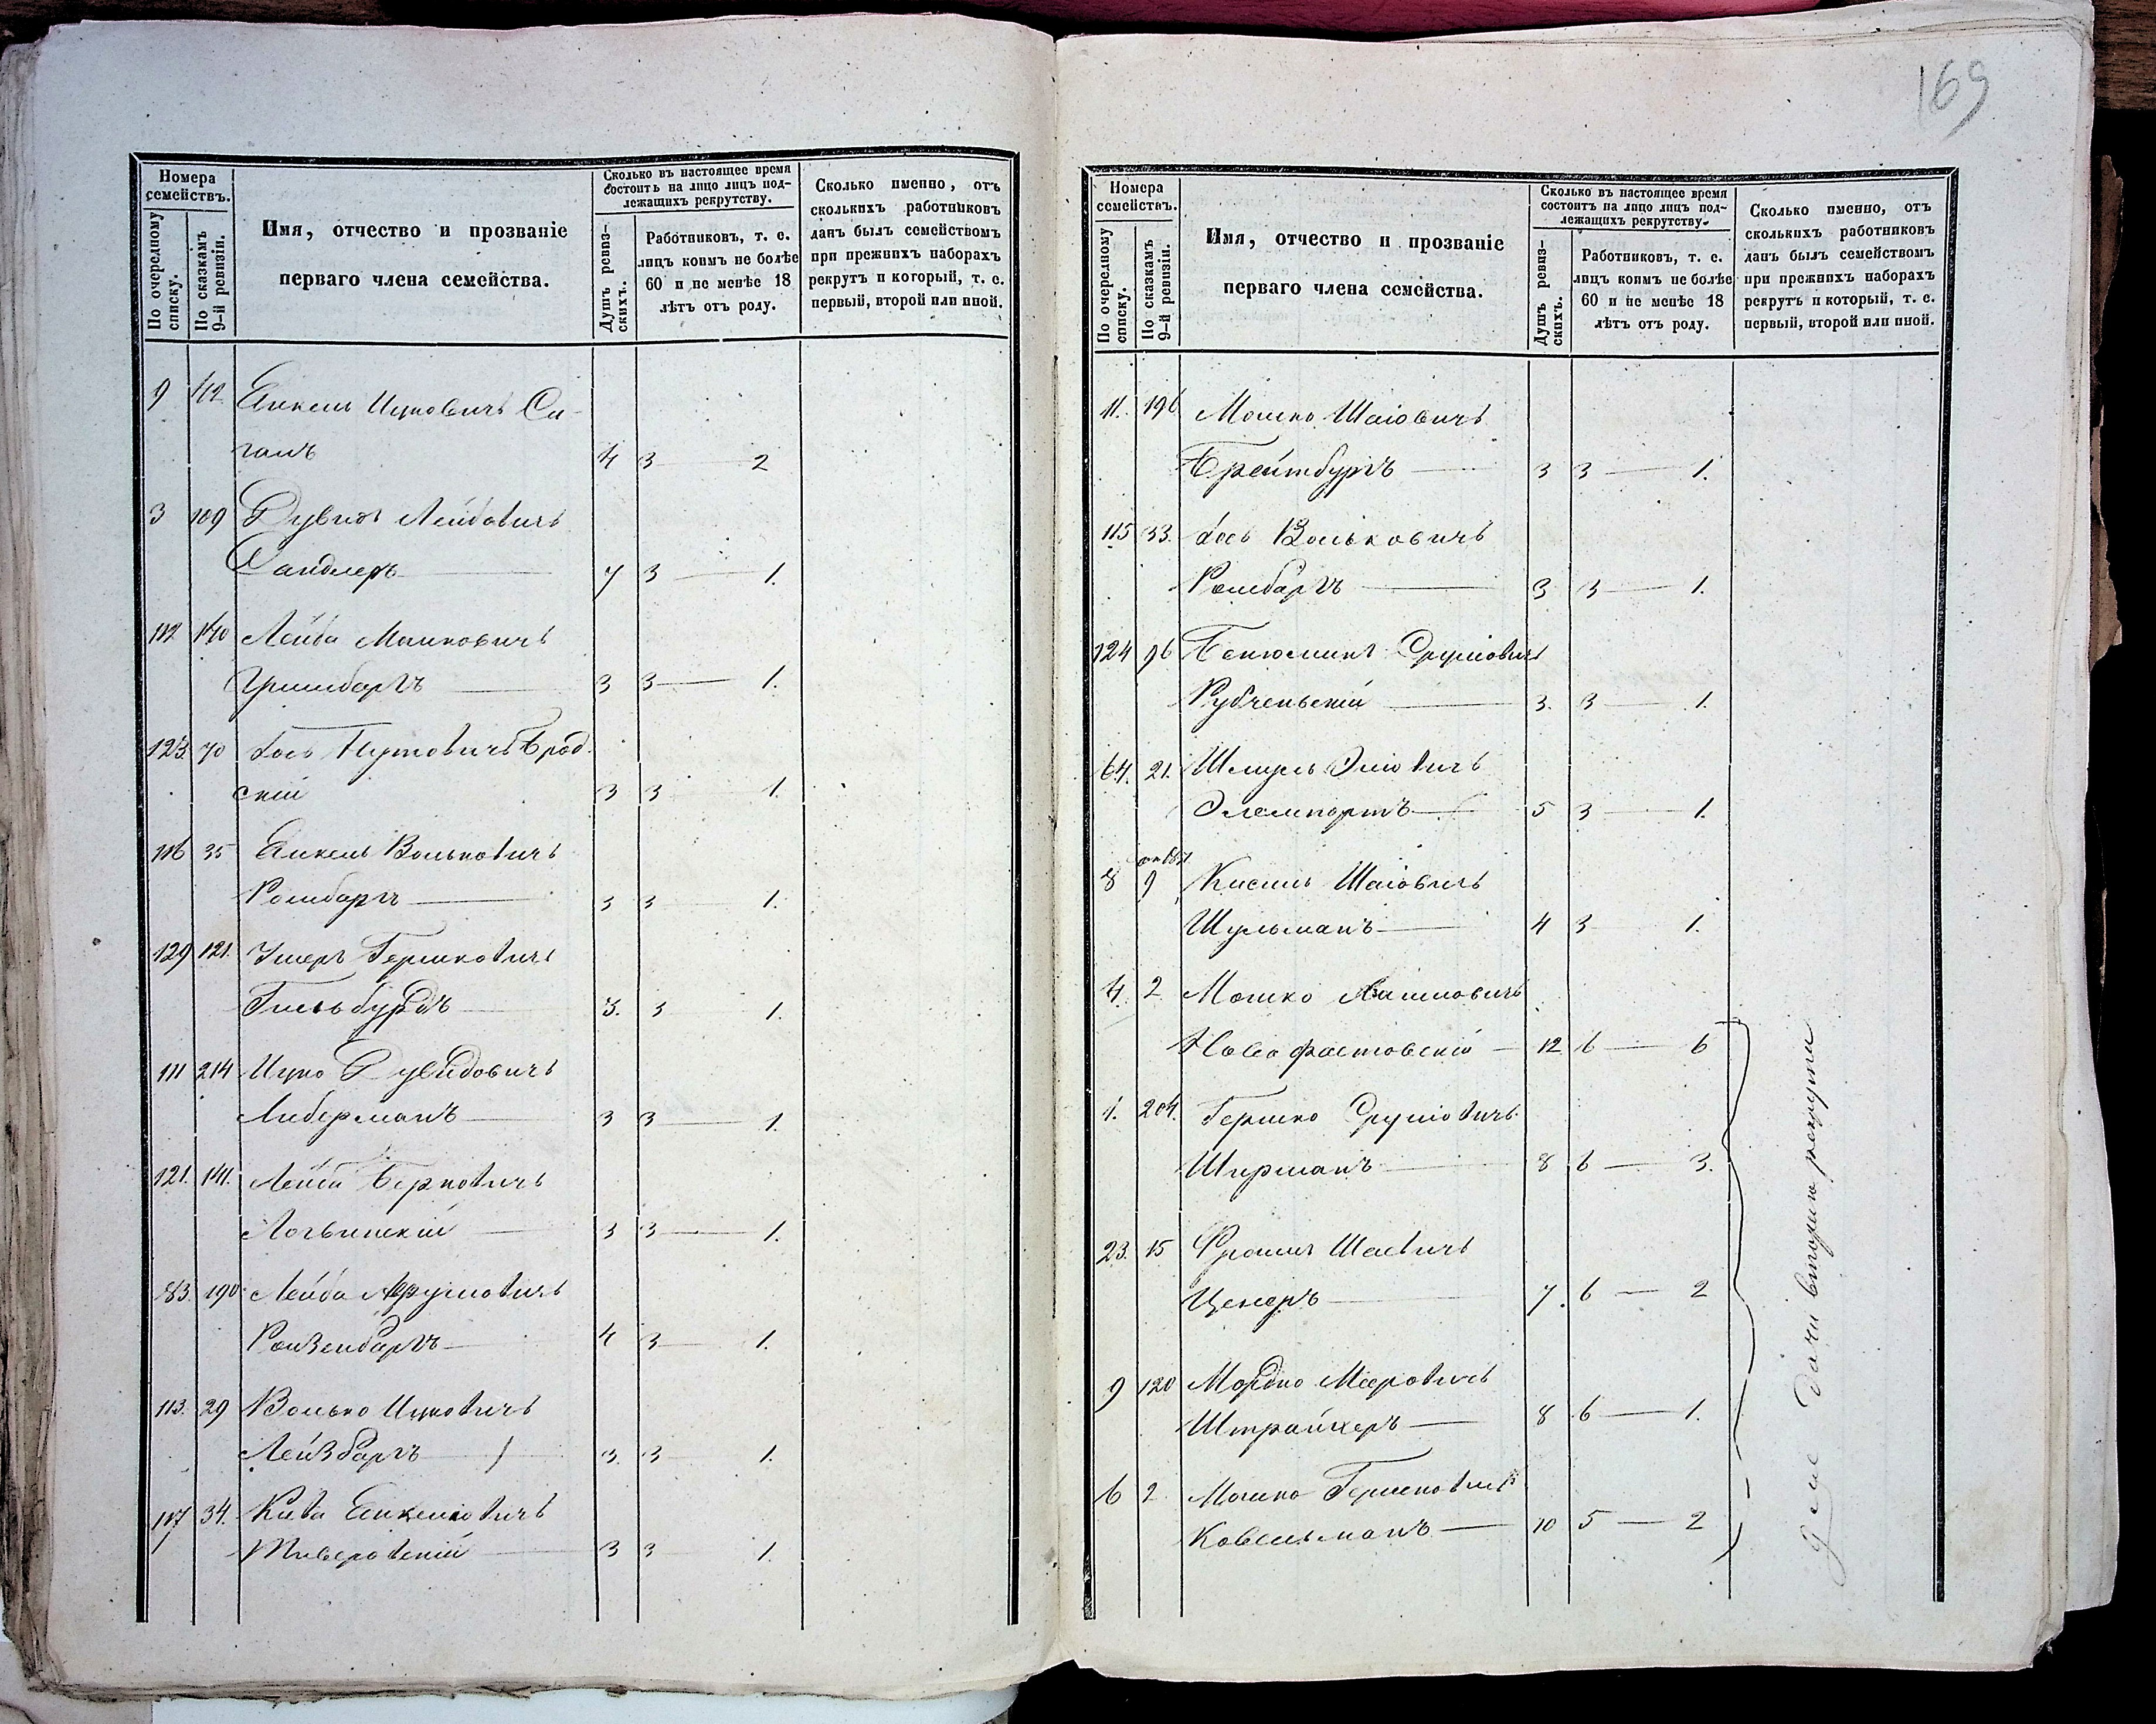 169
Номера
семействъ.
По очередному
списку.
По сказкамъ
9-й ревизіи.
Имя, отчество и прозваніе
перваго члена семейства.
Сколько въ настоящее время
состоитъ на лицо лицъ под-
лежащихъ рекрутству.
Душъ ревиз-
скихъ.
Работниковъ, т. е.
лицъ коимъ не болѣе
60 и не менѣе 18
лѣтъ отъ роду.
Сколько именно, отъ
сколькихъ работниковъ
данъ былъ семействомъ
при прежнихъ наборахъ
рекрутъ и который, т. е.
первый, второй или иной.
9 112 Янкель Ицковичъ Си-
галъ 4 3 — 2
3 109 Дувидъ Лейбовичъ
Сандлеръ — 7 3 — 1.
112 170 Лейба Мошковичъ
Гринбаргъ — 3 3 — 1.
123. 70 Іось Брод-
скій 3 3 1.
116 35 Янкель Вольковичъ
Ролибаргъ — 3 3 — 1.
129 121. Ушеръ Гершковичъ
Гильбурдъ — 3. 3 1.
111 214 Ицко Дувидовичъ
Либерманъ — 3 3 — 1.
121. 141. Лейба Берковичъ
Логвинскій — 3 3 — 1.
83. 190 Лейба Срулювичъ
Ройзенбаргъ — 4 3 — 1.
113. 29 Волько Ицковичъ
Лейзбаргъ — 3. 3 — 1.
117 34. Кива Янкеліовичъ
Тиверовскій — 3 3 — 1.
Номера
семейств.
По очередному
списку.
По сказкамъ
9-й ревизіи.
Имя, отчество и прозваніе
перваго члена семейства.
Сколько въ настоящее время
состоитъ на лицо лицъ под-
лежащихъ рекрутству.
Душъ ревиз-
скихъ.
Работниковъ, т. е.
лицъ коимъ не болѣе
60 и не менѣе 18
лѣтъ отъ роду.
Сколько именно, отъ
сколькихъ работниковъ
данъ былъ семействомъ
при прежнихъ наборахъ
рекрутъ и который, т. е.
первый, второй или иной.
11. 196 Мошко Шаіовичъ
Брейтбургъ — 3 3 — 1.
115 33. Іось Вольковичъ
Ролибаргъ — 3 3 — 1.
124 96 Беніоминъ Сруліовичъ
Рубченьскій — 3. 3 — 1.
64. 21. Шмуль Эліовичъ
Элемпортъ — 5 3 — 1.
8 9 Кисиль Шаіовичъ
Шульманъ — 4 3 1.
4. 2 Мошко Хаимовичъ
Новофастовскій — 12 6 — 6
1. 204. Гершко Сруліовичъ
Ширманъ — 8 6 — 3.
23. 15 Фроимъ Шаевичъ
Цекеръ — 7. 6 — 2
9 120 Мордко Мееровичъ
Штрайхеръ — 8 6 — 1.
6 2 Мошко Гершковичъ
Ковельманъ — 10 5 — 2
дачи вторыхъ рекрутъ